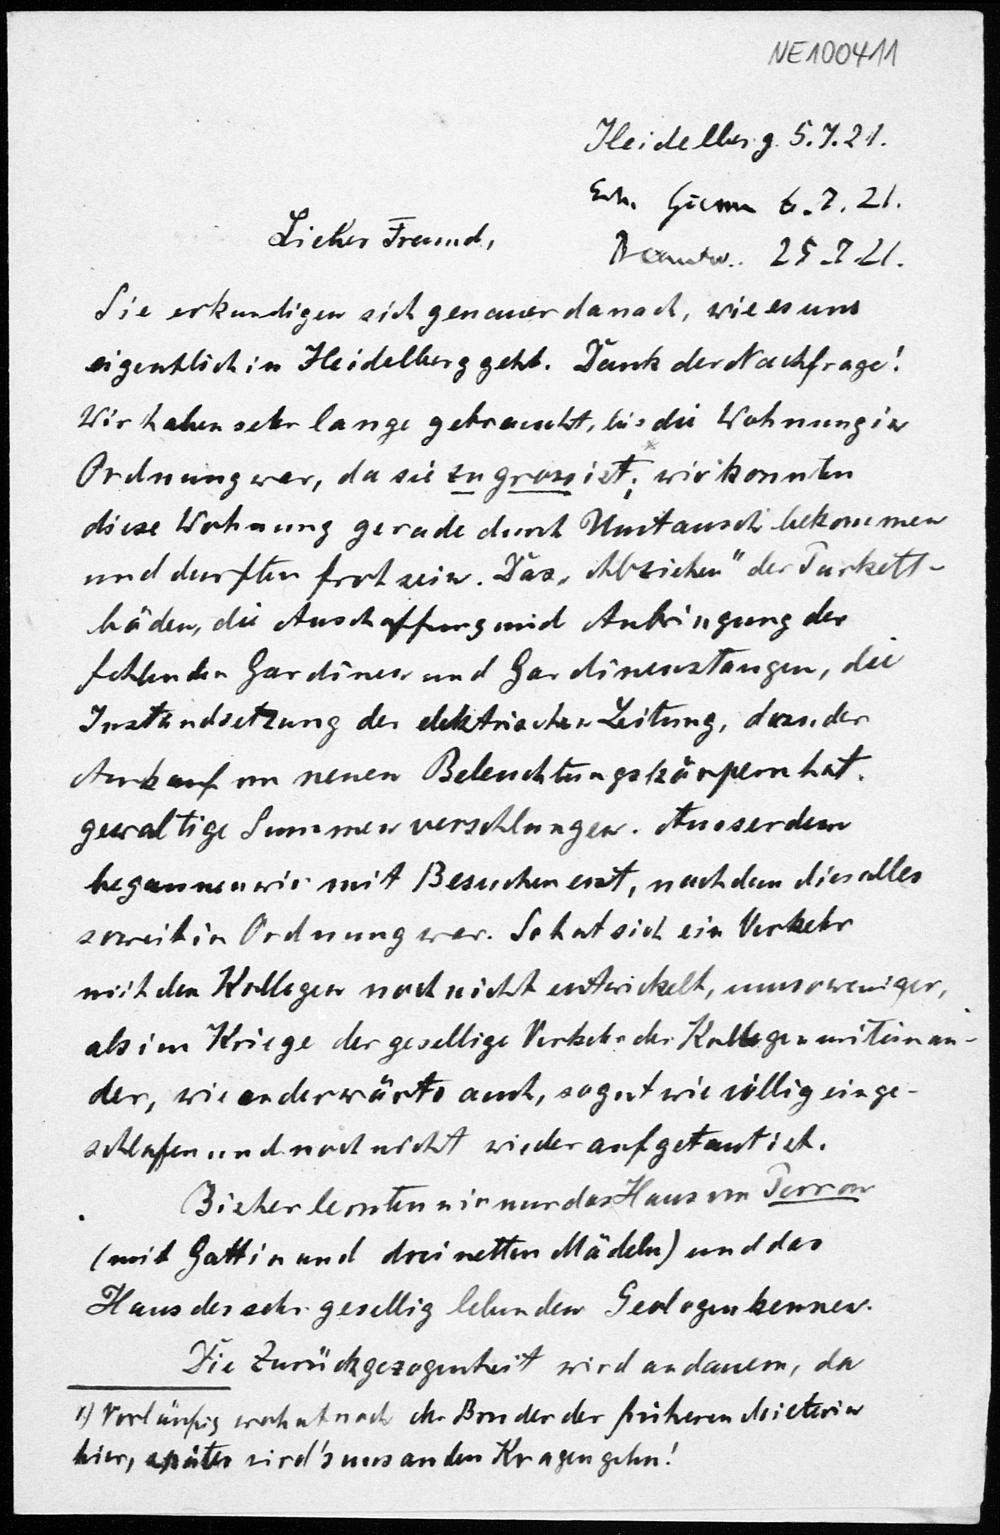 NE100411
Heidelberg 5.7.21.
Erh. 6.7.21.
Beantw. 25.7.21.
Lieber Freund,
Sie erkundigen sich genauer danach, wie es uns
eigentlich in Heidelberg geht. Dank der Nachfrage!
Wir haben sehr lange gebraucht, bis die Wohnung in
Ordnung war, da sie zu gross ist; wir konnten
diese Wohnung gerade durch Umtausch bekommen
und durften froh sein. Das „Abziehen" der Parkett-
böden, die Anschaffung und Anbringung der
fehlenden Gardinen und Gardinenstangen, die
Instandsetzung der elektrischen Leitung, dazu der
Ankauf von neuen Beleuchtungskörpern hat
gewaltige Summen verschlungen. Ausserdem
begannen wir mit Besuchen erst, nachdem dies alles
soweit in Ordnung war. So hat sich ein Verkehr
mit den Kollegen noch nicht entwickelt, umsoweniger,
als im Kriege der gesellige Verkehr der Kollegen miteinan-
der, wie anderwärts auch, so gut wie völlig einge-
schlafen und noch nicht wieder aufgetaut ist.
Bisher lernten wir nur das Haus von Perron
(mit Gattin und drei netten Mädeln) und das
Haus des sehr gesellig lebenden Geologen kennen.
Die Zurückgezogenheit wird andauern, da
1) Vorläufig wohnt noch der Bruder der früheren Mieterin
hier, später wird's uns an den Kragen gehn!